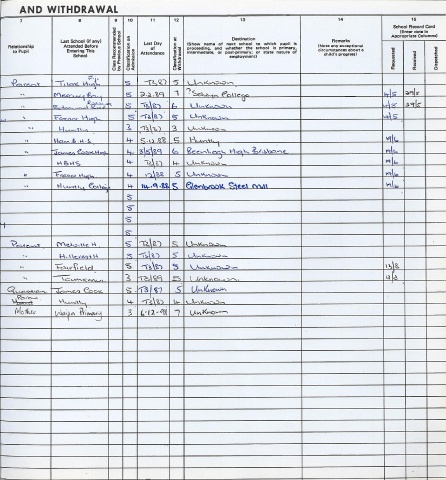 AND WITHDRAWAL
7 8 9 10 11 12 13 14 15
Relationship to Pupil
Last School (if any) Attended Before Entering This School
Class Recommended by Previous School
Classification on Admission
Last Day of Attendance
Classification at Withdrawal
Destination
(Show name of next school to which pupil is proceeding, and whether the school is primary, intermediate, or post-primary; or state nature of employment)
Remarks
(Note any exceptional circumstances about a child's progress)
School Record Card
(Enter date in Appropriate Columns)
Requested
Received
Deposited
Parent High 5 T3/87 5 Unknown
" Bay 5 2.2.89 7 College 4/5
" 5 T3/87 6 Unknown 4/5
" Fraser High 5 T3/87 5 Unknown 4/5
" Huntly 3 T3/87 3 Unknown
" Ham B.H.S. 4 5.12.88 5 Huntly
" James Cook High 4 3/5/89 6 Beenleigh High Brisbane
" HBHS 4 4 Unknown
" Fraser High 4 12/88 5 Unknown
" Huntly College 4 14.9.88 5 Glenbrook Steel Mill
5
5
5
5
Parent Melville H. 5 T3/87 5 Unknown
" Hillcrest H 5 T3/87 5 Unknown
" Fairfield 5 T3/87 5 Unknown
" 3 T3/89 5 Unknown
Guardian James Cook 5 T3/87 5 Unknown
Huntly 4 T3/87 4 Unknown
Mother Primary 3 7 Unknown